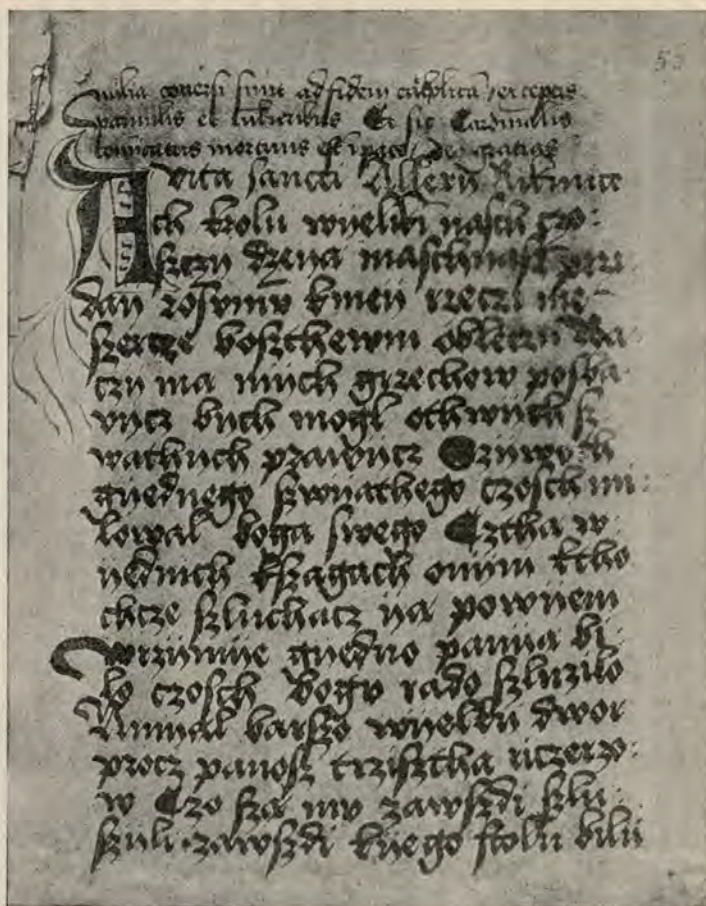 milia conversi sunt ad fidem catholicā exceptis
parvulis et mulieribus Et sic Cardinalis
mortuus est deo gratias
vita sancti Allexy Rithmice
Ach krolu wyeliki naschu czo:
szczy dzeya maschiasch przi
day rosvmv kmey rzeczi me
szercze boszthewm obleczy Ra
czy ma mych grzechow posba
vycz bych mogl othwych s
wathych prawycz Szywoth
gyednego szwyathego czosch mi:
lowal boga swego Cztha w
yednich kszagach omym ktho
chcze szluchacz ya powyem
Wrzymye gyedno panya bi
lo czosch bogv rado szluzilo
Amyal barszo wyelky dwor
procz panosz trzisztha riczerzo:
w Czo sza mv zawszdi szlu
szyli zawszdi kyego stolu bily
55